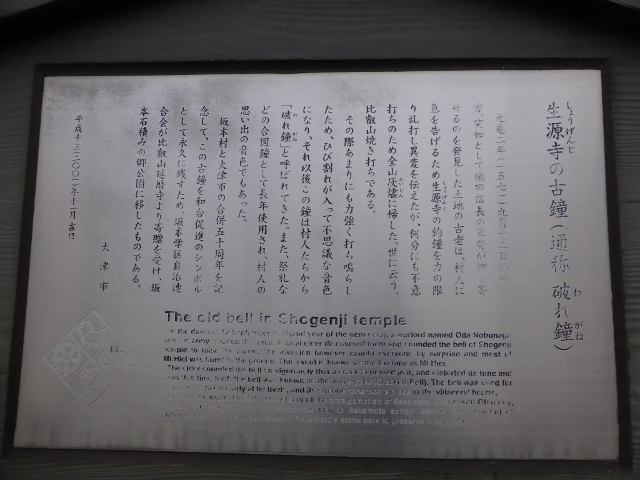 しょうげんじ
生源寺の古鐘(通称 破れ鐘)
わ がね
元亀二年(一五七一)九月十二日の
方、突如として織田信長の
せるのを発見した土地の古老は、村人に
急を告げるため生源寺の釣鐘を力の限
り乱打し異変を伝えたが、何分にも不意
打ちのため全山灰燼に帰した。世に云う、
比叡山焼き打ちである。
その際あまりにも力強く打ち鳴らし
たため、ひび割れが入って不思議な音色
になり、それ以後この鐘は村人たちから
「破れ鐘」と呼ばれてきた。また、祭礼な
どの合図鐘として長年使用され、村人の
思い出の音色でもあった。
坂本村と大津市の合併五十周年を記
念して、この古鐘を和合促進のシンボル
として永久に残すため、坂本学区自治連
合会が比叡山延暦寺より寄贈を受け、坂
本石積みの郷公園に移したものである。
平成十三(二〇〇一)年十一月吉日
大津市
The old bell in Shogenji temple
In the dawn of 12 September 2nd year of the a warlord named Oda Nobunaga
and army the area. A local elder discovered them and sounded the bell of Shogenji
temple to raise the alarm. The invasion however caught everyone by surprise and most of
Mt.Hiei was burnt to the ground. This event is known as the of Mt Hiei.
The elder sounded the bell so vigorously that a crack appeared in it, and distorted its tone and
from this time the bell was known as the (Cracked Bell). The bell was used for
festivals, and the villagers' hearts.
amalgamation of Sakamoto with Otsu city,
to Sakamoto school
Sakamoto stone park to preserve it